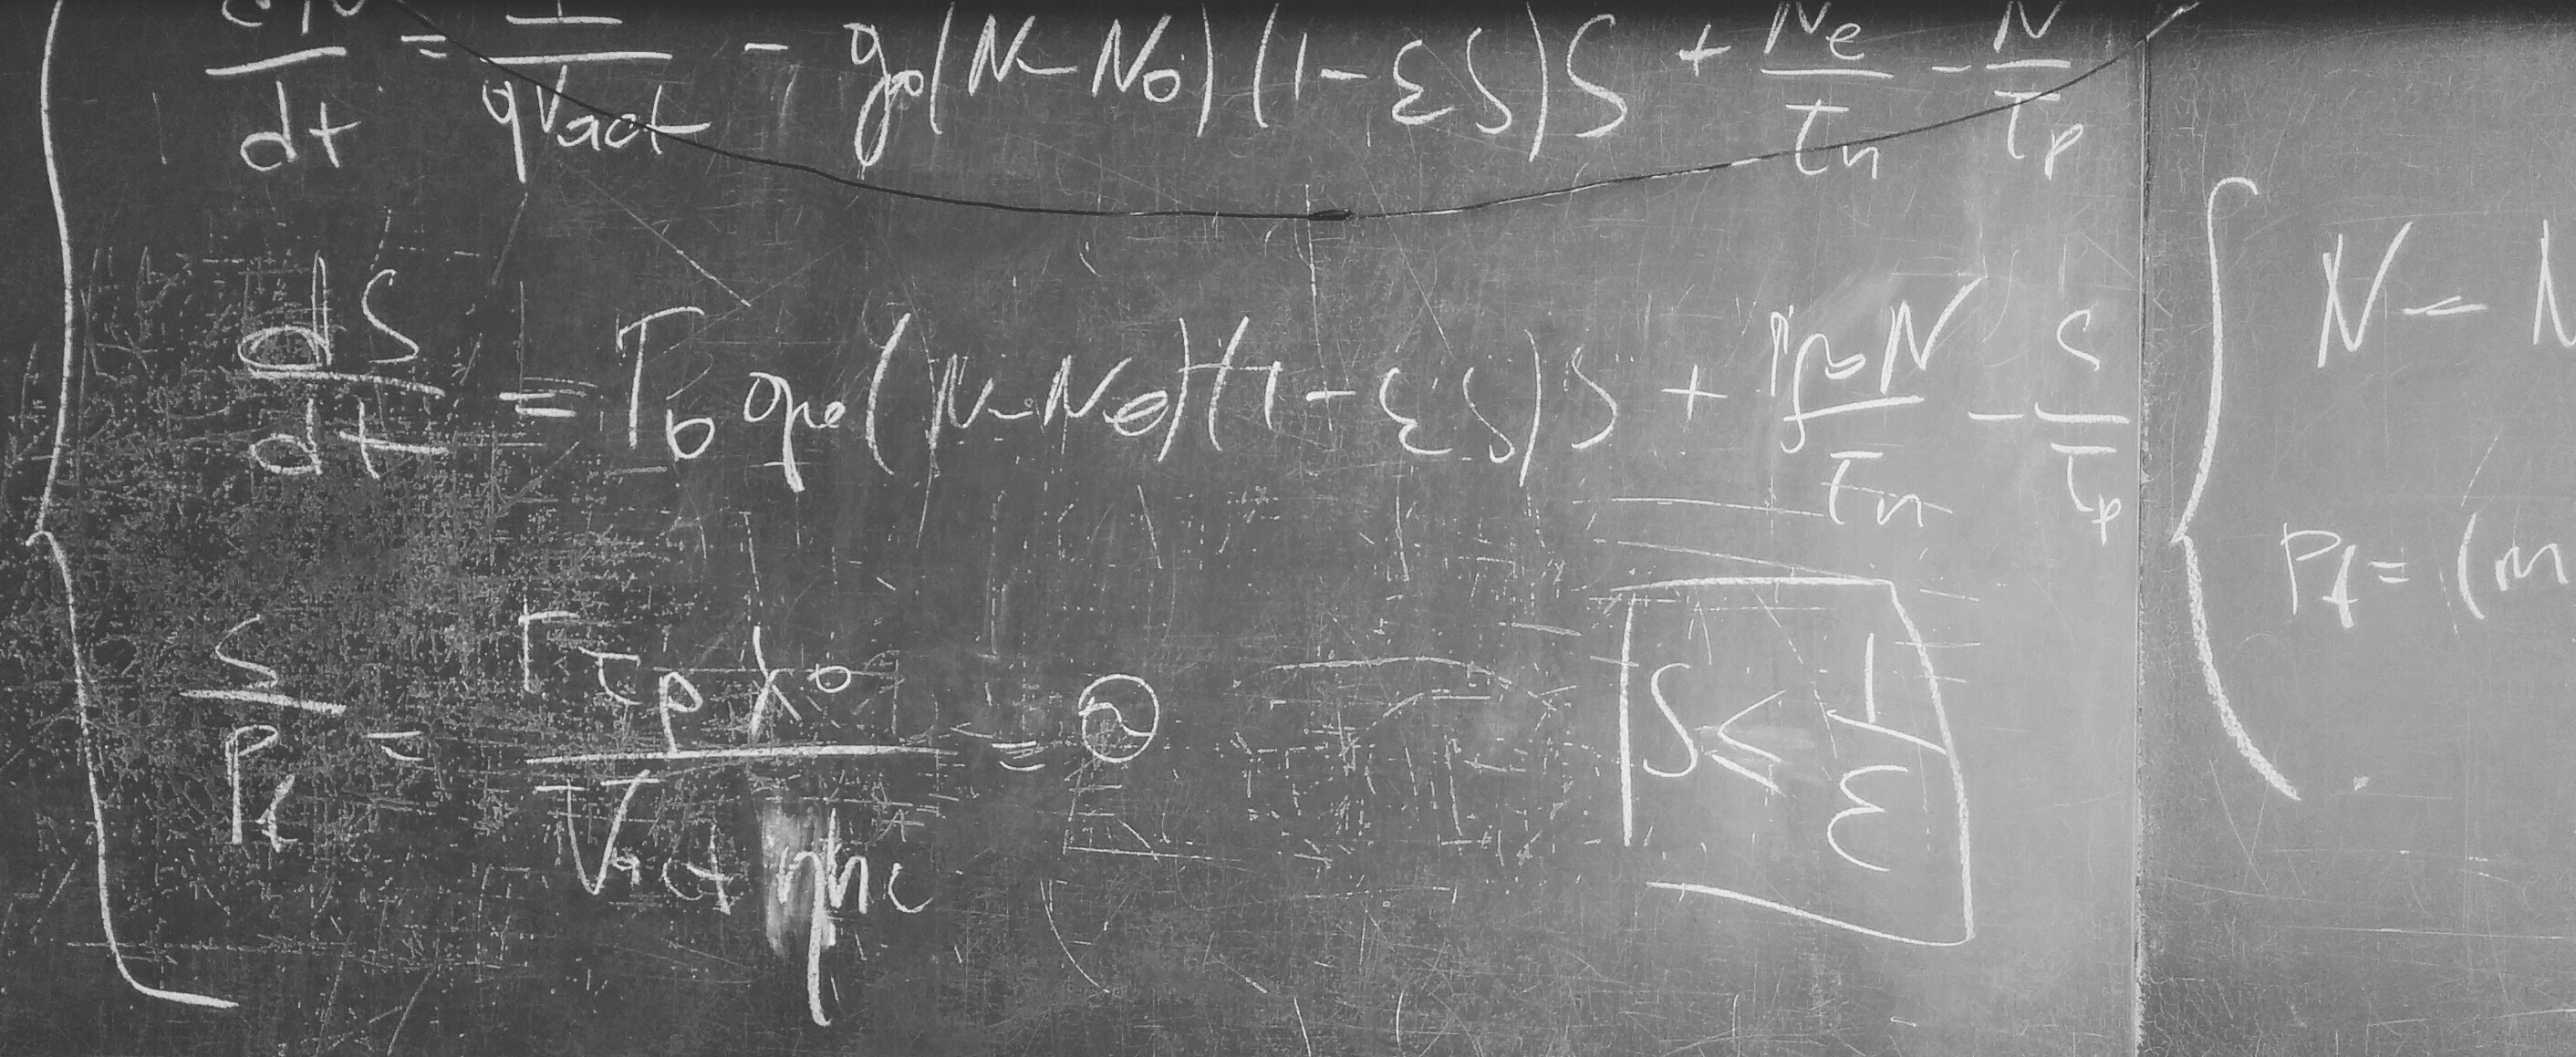 dN/dt = I/(qVact) - g₀(N - N₀)(1 - εS)S + Ne/τn - N/τp
dS/dt = Γ₀g₀(N - N₀)(1 - εS)S + ΓβN/τn - S/τp
S/Pf = Γτpλ₀/(Vact ηhc) = ϑ
S ≤ 1/ε
N = N
Pf = (m